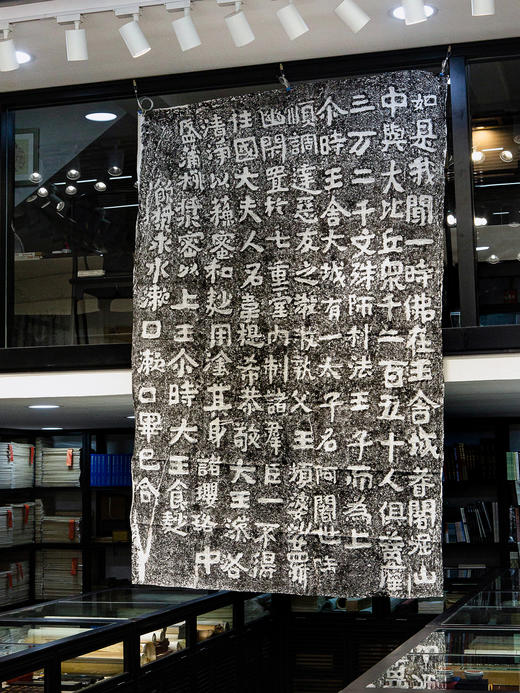 如是我聞一時佛在王舍城耆闍崛山
中與大比丘衆千二百五十人俱菩薩
三万二千文殊師利法王子而為上
尒時王舍大城有一太子名阿闍世
順調達惡友之教收執父王頻婆娑羅
幽閉置扵七重室内制諸羣臣一不得
往國大夫人名韋提希恭敬大王澡浴
清淨以蘓蜜和麨用塗其身諸瓔珞中
盛蒲桃漿密以上王尒時大王食麨
飲漿求水漱口漱口畢已合